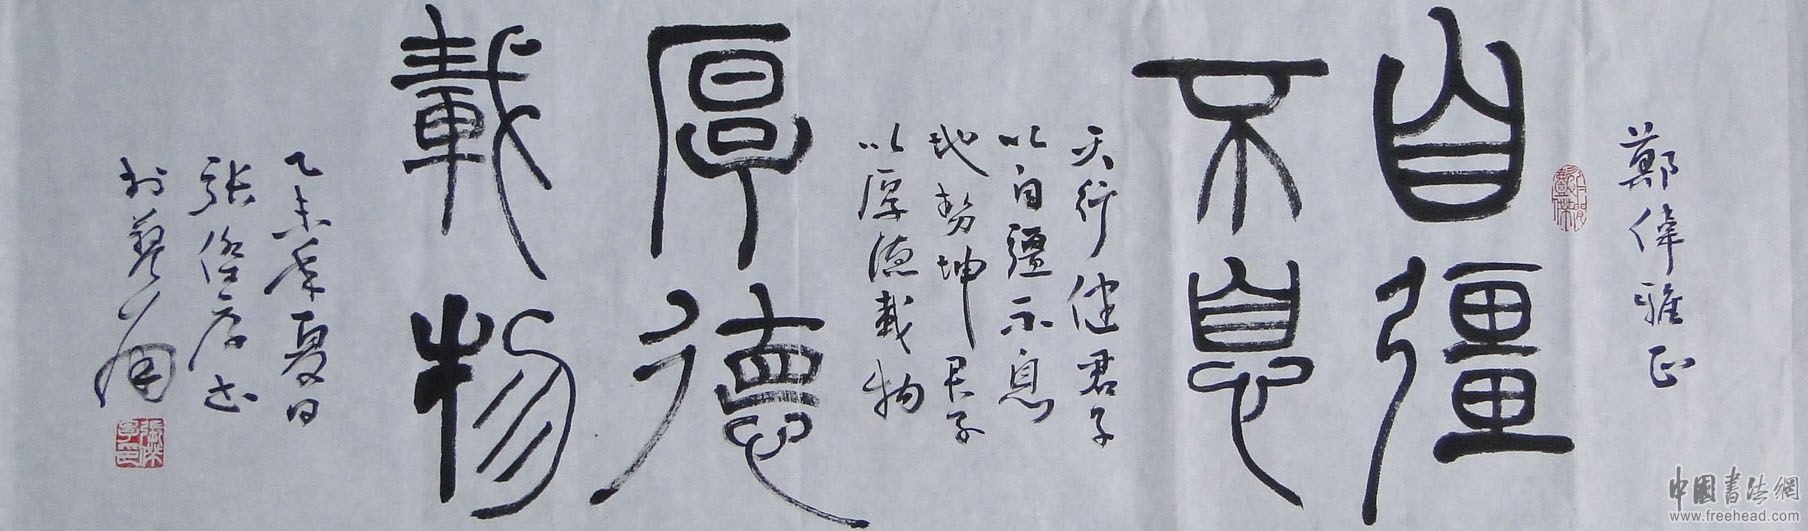 鄭偉雅正
自彊
不息
天行健君子
以自彊不息
地勢坤君子
以厚德載物
厚德
載物
乙未年夏日
张
中國書法網
www.freehead.com